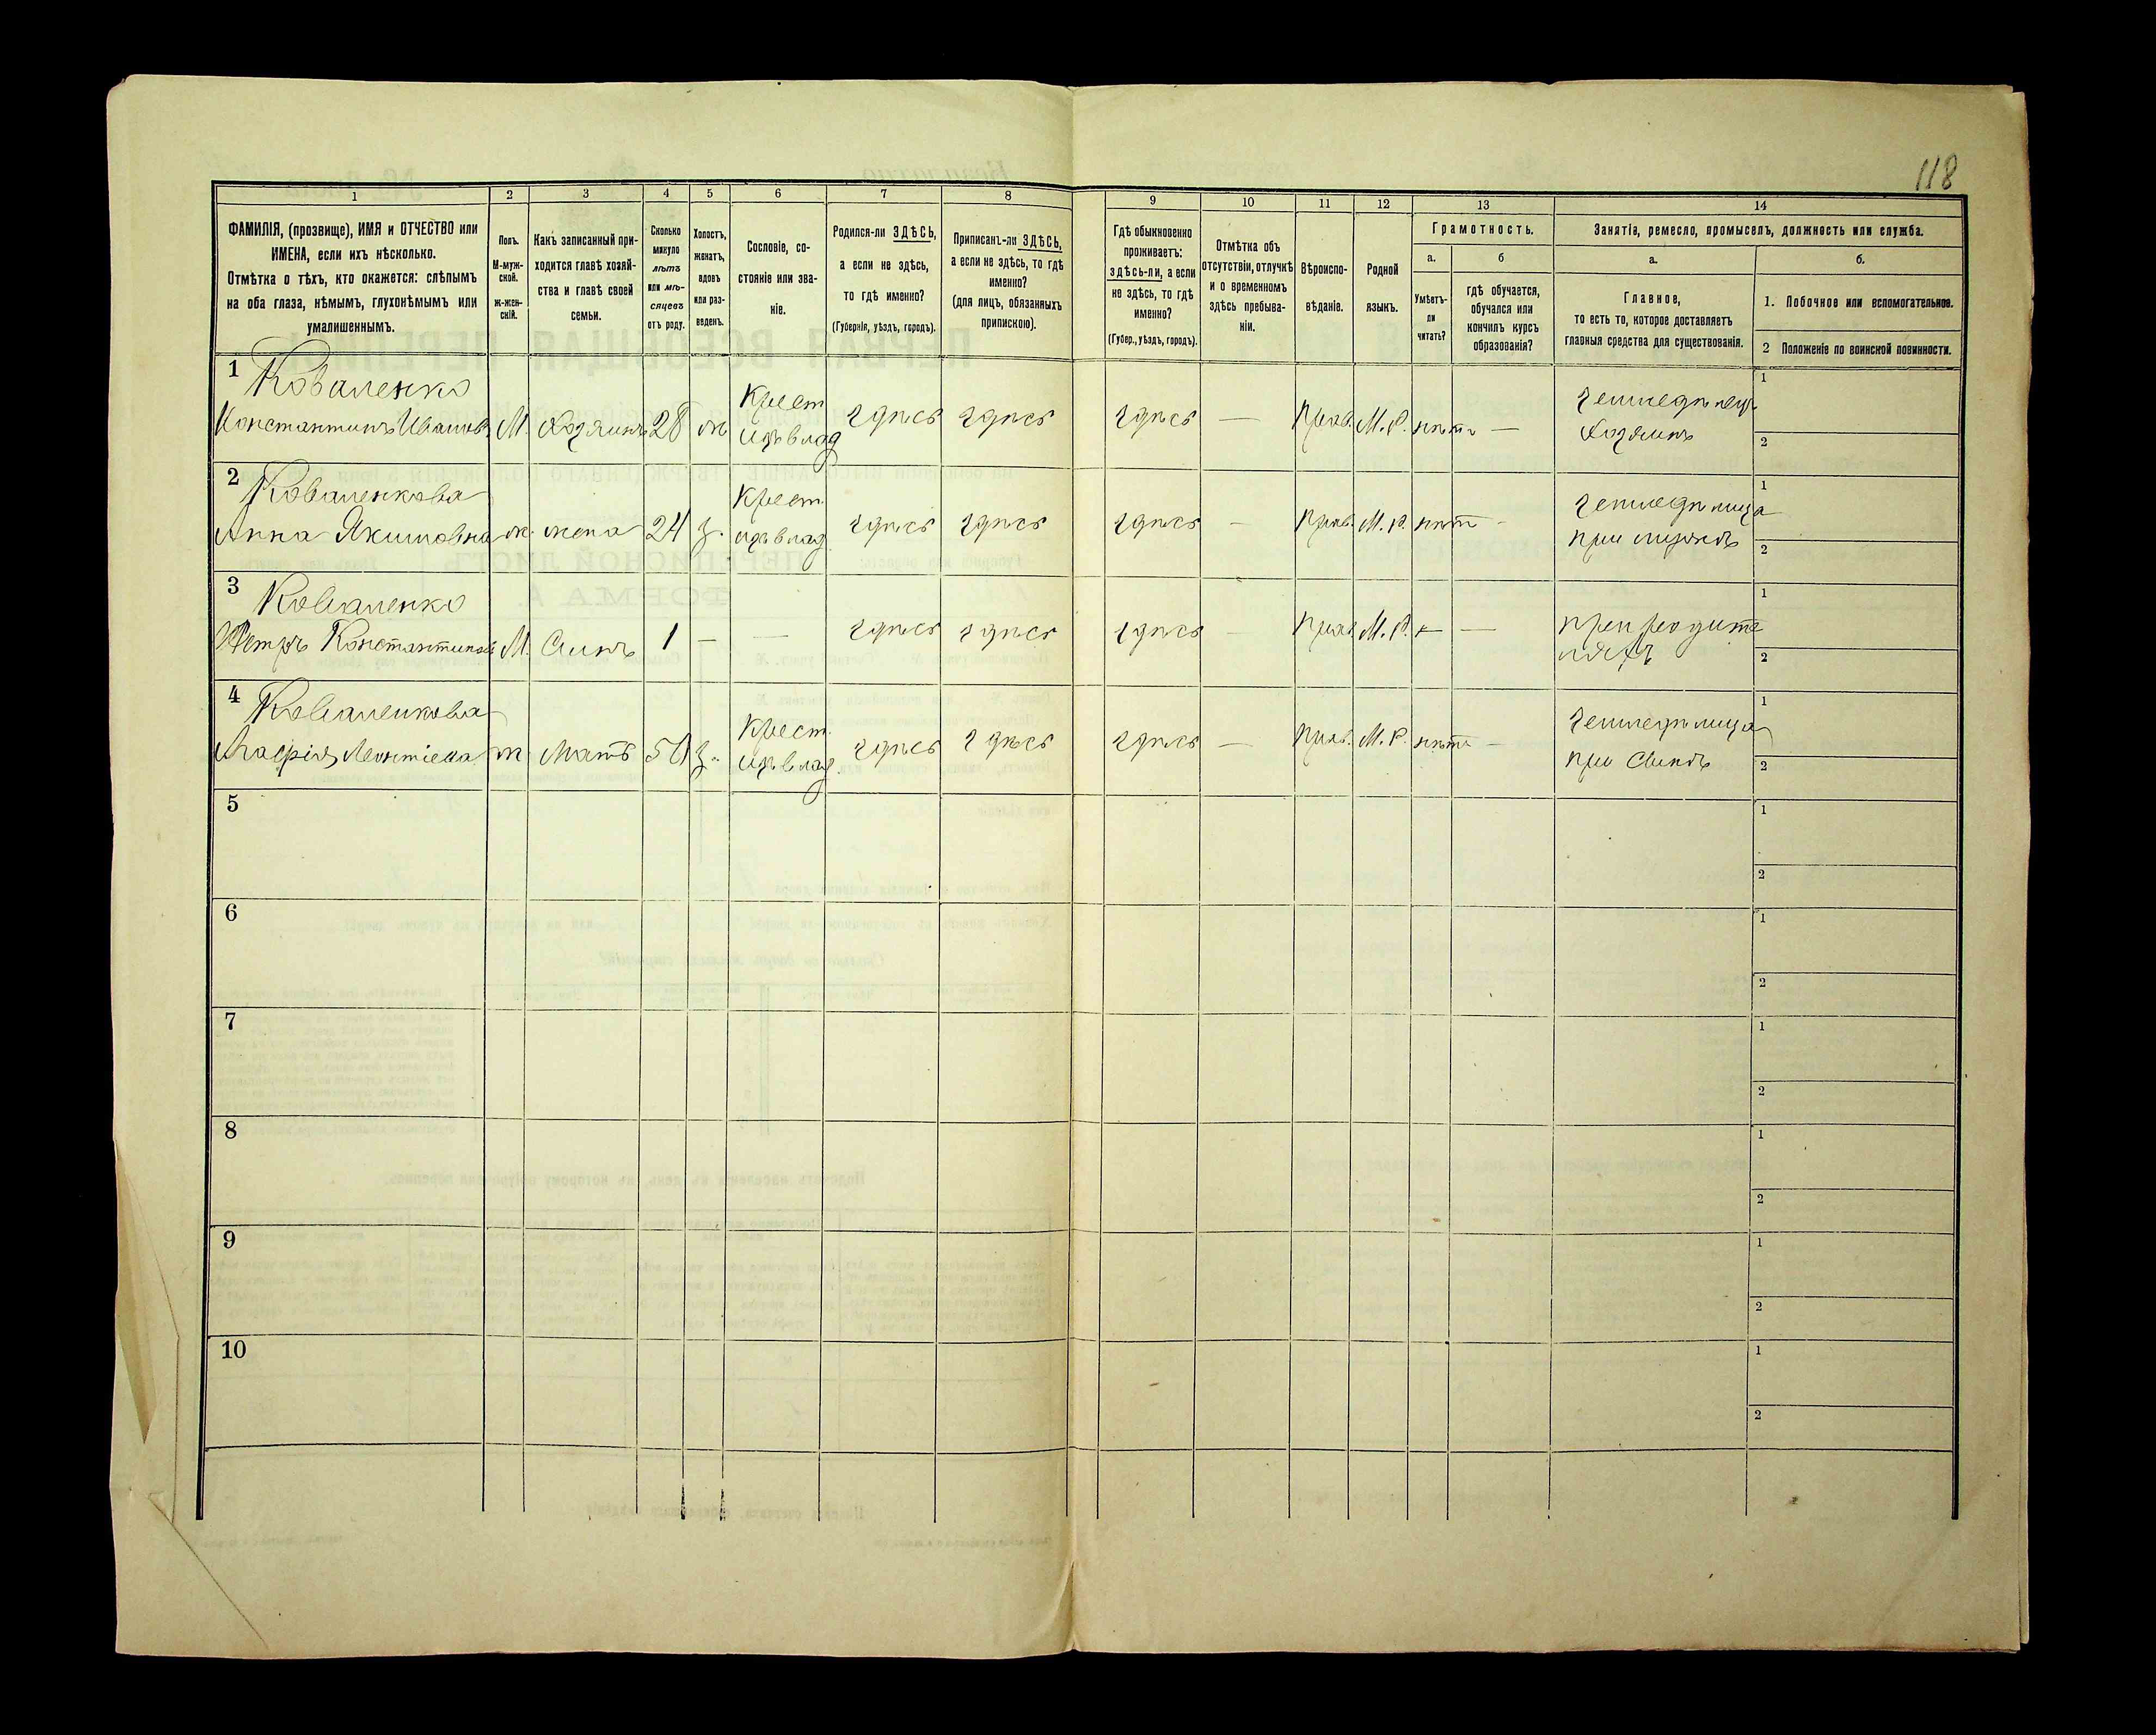 118
1 2 3 4 5 6 7 8 9 10 11 12 13 14
ФАМИЛІЯ, (прозвище), ИМЯ и ОТЧЕСТВО или
ИМЕНА, если ихъ нѣсколько.
Отмѣтка о тѣхъ, кто окажется: слѣпымъ
на оба глаза, нѣмымъ, глухонѣмымъ или
умалишеннымъ.
Полъ.
М-муж-
ской.
ж-жен-
скій.
Какъ записанный при-
ходится главѣ хозяй-
ства и главѣ своей
семьи.
Сколько
минуло
лѣтъ
или мѣ-
сяцевъ
отъ роду.
Холостъ,
женатъ,
вдовъ
или раз-
веденъ.
Сословіе, со-
стояніе или зва-
ніе.
Родился-ли ЗДѢСЬ,
а если не здѣсь,
то гдѣ именно?
(Губернія, уѣздъ, городъ).
Приписанъ-ли ЗДѢСЬ,
а если не здѣсь, то гдѣ
именно?
(для лицъ, обязанныхъ
припискою).
Гдѣ обыкновенно
проживаетъ:
здѣсь-ли, а если
не здѣсь, то гдѣ
именно?
(Губер., уѣздъ, городъ).
Отмѣтка объ
отсутствіи, отлучкѣ
и о временномъ
здѣсь пребыва-
ніи.
Вѣроиспо-
вѣданіе.
Родной
языкъ.
Грамотность.
а.
Умѣетъ-
ли
читать?
б
гдѣ обучается,
обучался или
кончилъ курсъ
образованія?
Занятіе, ремесло, промыселъ, должность или служба.
а.
Главное,
то есть то, которое доставляетъ
главныя средства для существованія.
б.
1. Побочное или вспомогательное.
2 Положеніе по воинской повинности.
1 Коваленко Крест земледѣлецъ 1
Константинъ Иванов. М. Хозяинъ 28 ж издѣвлад здѣсь здѣсь здѣсь — Прав. М.Р. нѣтъ — Хозяинъ 2
2 Коваленкова Крест. земледѣлица 1
Анна Якимовна ж. жена 24 з. здѣсь здѣсь здѣсь — Прав. М.Р. нѣт - при мужѣ 2
3 Коваленко при родите 1
Петръ Константинов М. Сынъ 1 — — здѣсь здѣсь здѣсь — Прав. М.Р. — — ляхъ 2
4 Коваленкова Крест. земледѣлица 1
Марія Леонтіева ж Мать 50 з. здѣсь здѣсь здѣсь — Прав. М.Р. нѣтъ — при Сынѣ 2
5 1
2
6 1
2
7 1
2
8 1
2
9 1
2
10 1
2